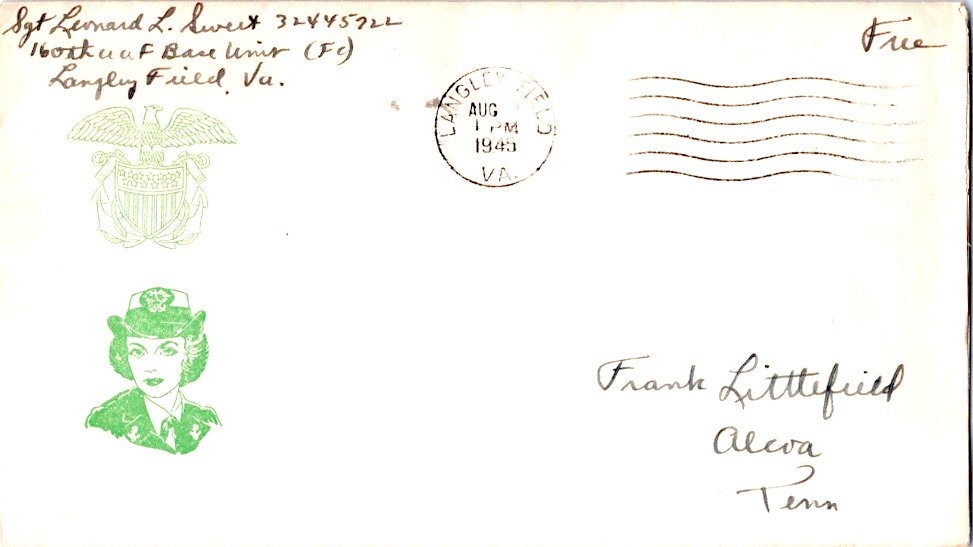 Sgt Leonard L. Sweet 32445722
160th a a F Base Unit (Fc)
Langley Field, Va.
Free
LANGLEY FIELD
AUG
1 PM
1945
VA.
Frank Litttefield
Alcoa
Tenn